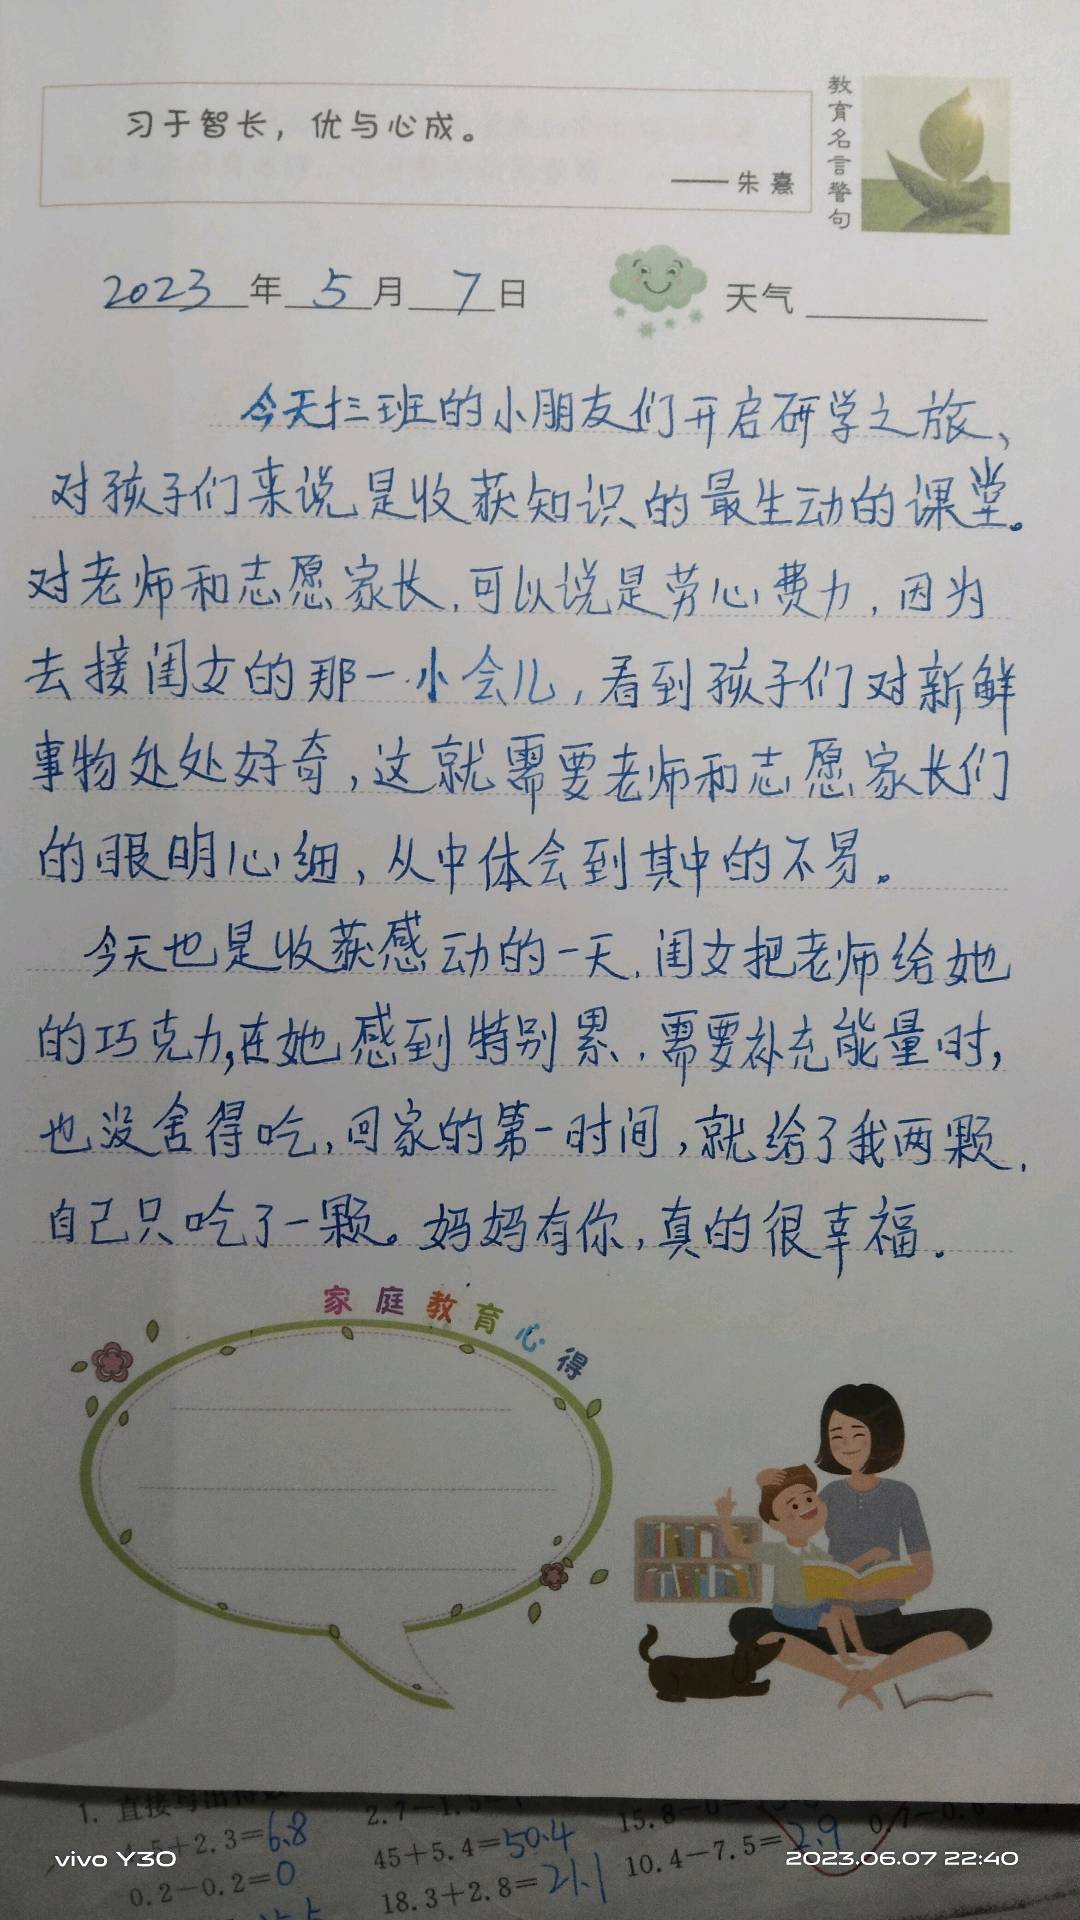 习于智长，优与心成。
——朱熹
教育名言警句
2023年5月7日
天气
今天拦三班的小朋友们开启研学之旅、
对孩子们来说是收获知识的最生动的课堂。
对老师和志愿家长，可以说是劳心费力，因为
去接闺女的那一小会儿，看到孩子们对新鲜
事物处处好奇，这就需要老师和志愿家长们
的眼明心细，从中体会到其中的不易。
今天也是收获感动的一天，闺女把老师给她
的巧克力，在她感到特别累，需要补充能量时，
也没舍得吃，回家的第一时间，就给了我两颗，
自己只吃了一颗。妈妈有你，真的很幸福。
家庭教育心得
1. 直接写出得数
2.7-1.5=
15.8-0
0.7-0.6
5+2.3=6.8
45+5.4=50.4
10.4-7.5=2.9
0.2-0.2=0
18.3+2.8=21.1
vivo Y30
2023.06.07 22:40